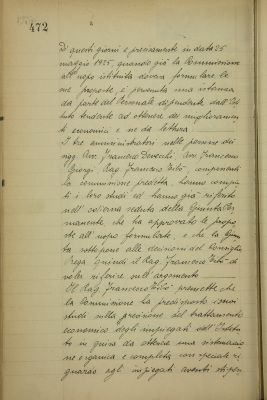 472
Di questi giorni e precisamente in data 25
maggio 1925, quando già la Commissione
all'uopo istituita doveva formulare le
sue proposte, è pervenuta una istanza
da parte del Personale dipendente dall'Isti
tuto tendente ad ottenere dei miglioramen
ti economici e ne dà lettura.
I tre amministratori nelle persone dei
Sigg. Avv. Francesco Avv. Francesco
Giorgi Rag. Francesco Vitò, componenti
la commissione predetta, hanno compiu
ti i loro studi ed hanno già riferito
nell'odierna seduta della Giunta Per
manente, che ha approvato le propo
ste all'uopo formulate, e che la Giun
ta sottopone alle decisioni del Consiglio.
Prega quindi il Rag. Francesco Vitò di
voler riferire sull'argomento.
Il Rag. Francesco Vitò premette che
la Commissione ha predisposto i suoi
studi sulla previsione del trattamento
economico degli impiegati dell'Istitu
to in guisa da ottenere una sistemazio
ne organica e completa con speciale ri
guardo agli impiegati aventi stipen